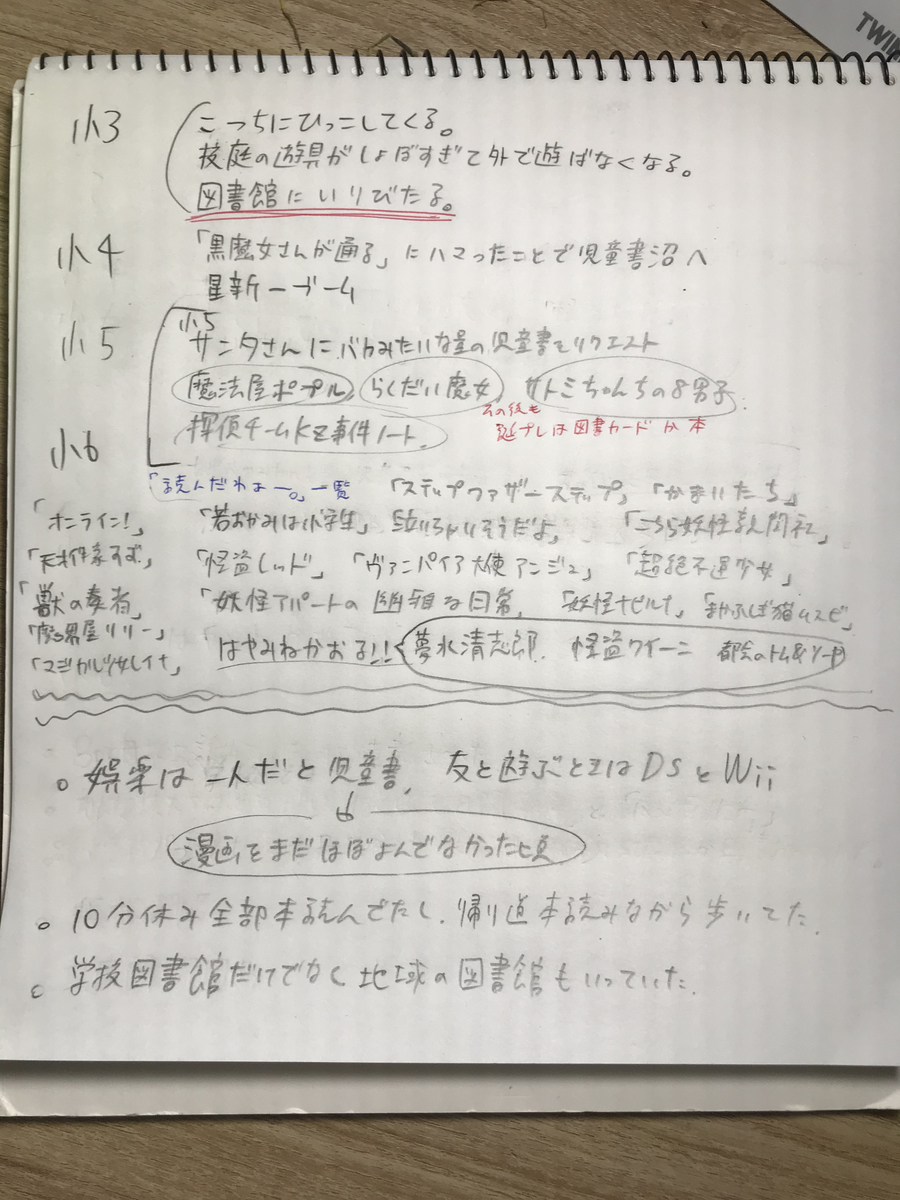 TWIN
小3
こっちにひっこしてくる。
校庭の遊具がしょぼすぎて外で遊ばなくなる。
図書館にいりびたる。
小4
「黒魔女さんが通る」にハマったことで児童書沼へ
星新一ブーム
小5
小5
サンタさんにバカみたいな量の児童書をリクエスト
魔法屋ポプル らくだい魔女 サトミちゃんちの8男子
その後も
誕プレは図書カードか本
探偵チームKZ事件ノート
小6
「読んだわよー。」一覧 「ステップファザーステップ」 「かまいたち」
「オンライン!」 「若おかみは小学生」 泣いちゃいそうだよ 「こちら妖怪新聞社」
「怪盗レッド」 「ヴァンパイア大使アンジュ」 「超絶不運少女」
「獣の奏者」 「妖怪アパートの幽雅な日常」 「妖怪ナビルナ」 「まかふしぎ猫ムスビ」
「魔男屋リリー」
「マジカル少女レイナ」 はやみねかおる!! 夢水清志郎 怪盗クイーン 都会のトム&ソーヤ
娯楽は一人だと児童書、友と遊ぶときはDSとWii
漫画をまだほぼよんでなかった頃
10分休み全部本読んでたし、帰り道本読みながら歩いてた。
学校図書館だけでなく地域の図書館もいっていた。